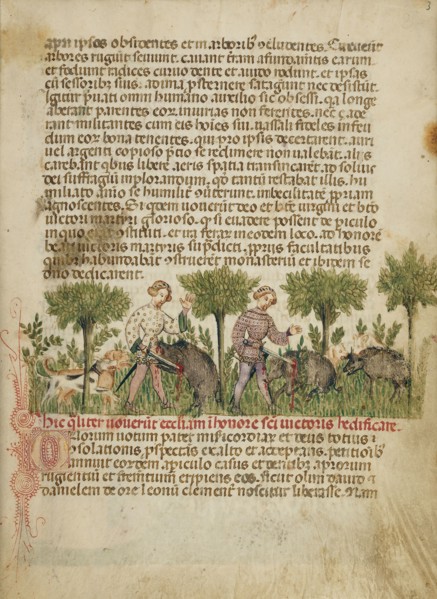 3
apri ipsos obsidentes et in arborib ꝯcludentes. Et ceuerūt
arbores rugiūt seuiunt. cauant trām afundamītis earum
et fodiunt radices curuo dente et auido rodunt. et ipsas
cū sessoribȝ suis. ad ima psternere satagunt nec desistūt.
Igitur
omni humano auxilio sic obsessi. qa longe
aberant parentes eorͫ
non ferentes. nec
tant militantes cum eis
sui. uassali fideles infeu
dum eorͫ bona tenentes. qui pro ipsis decertarent. auri
uel argenti copioso p̄tio se redimere non ualebāt. alis
carebant qbus libere aeris spatia transuolarēt. ad solius
dei suffragiū implorandum. qd tantū restabat illis. hu
miliato aīo se humilit ꝯūterunt. inbecillitatē
agnoscentes.
uouerūt deo et bte uirgini et bto
uictori martyri glorioso. qd si euadere possent de piculo
in quo
ꝯstituti. et ita feraȝ in eodem loco. ad honorē
beati uictoris martyris supdicti. ppriis facultatibus
quibȝ habundabāt ꝯstruerēt monasteriū et ibidem se
dno dedicarent.
Hic qliter uouerūt eccliam ī honore sci uictoris hedificare.
Quorum uotum pater misericordiaȝ et deus totius ꝯ
solationis, pspectas exalto et acceptans. petitionibȝ
annuit eordem. apiculo casus et dentibȝ aprorum
rugientiū et frementium eripiens eos. sicut olim dauid et
danielem de ore leonū clement noscitur liberasse. Nam